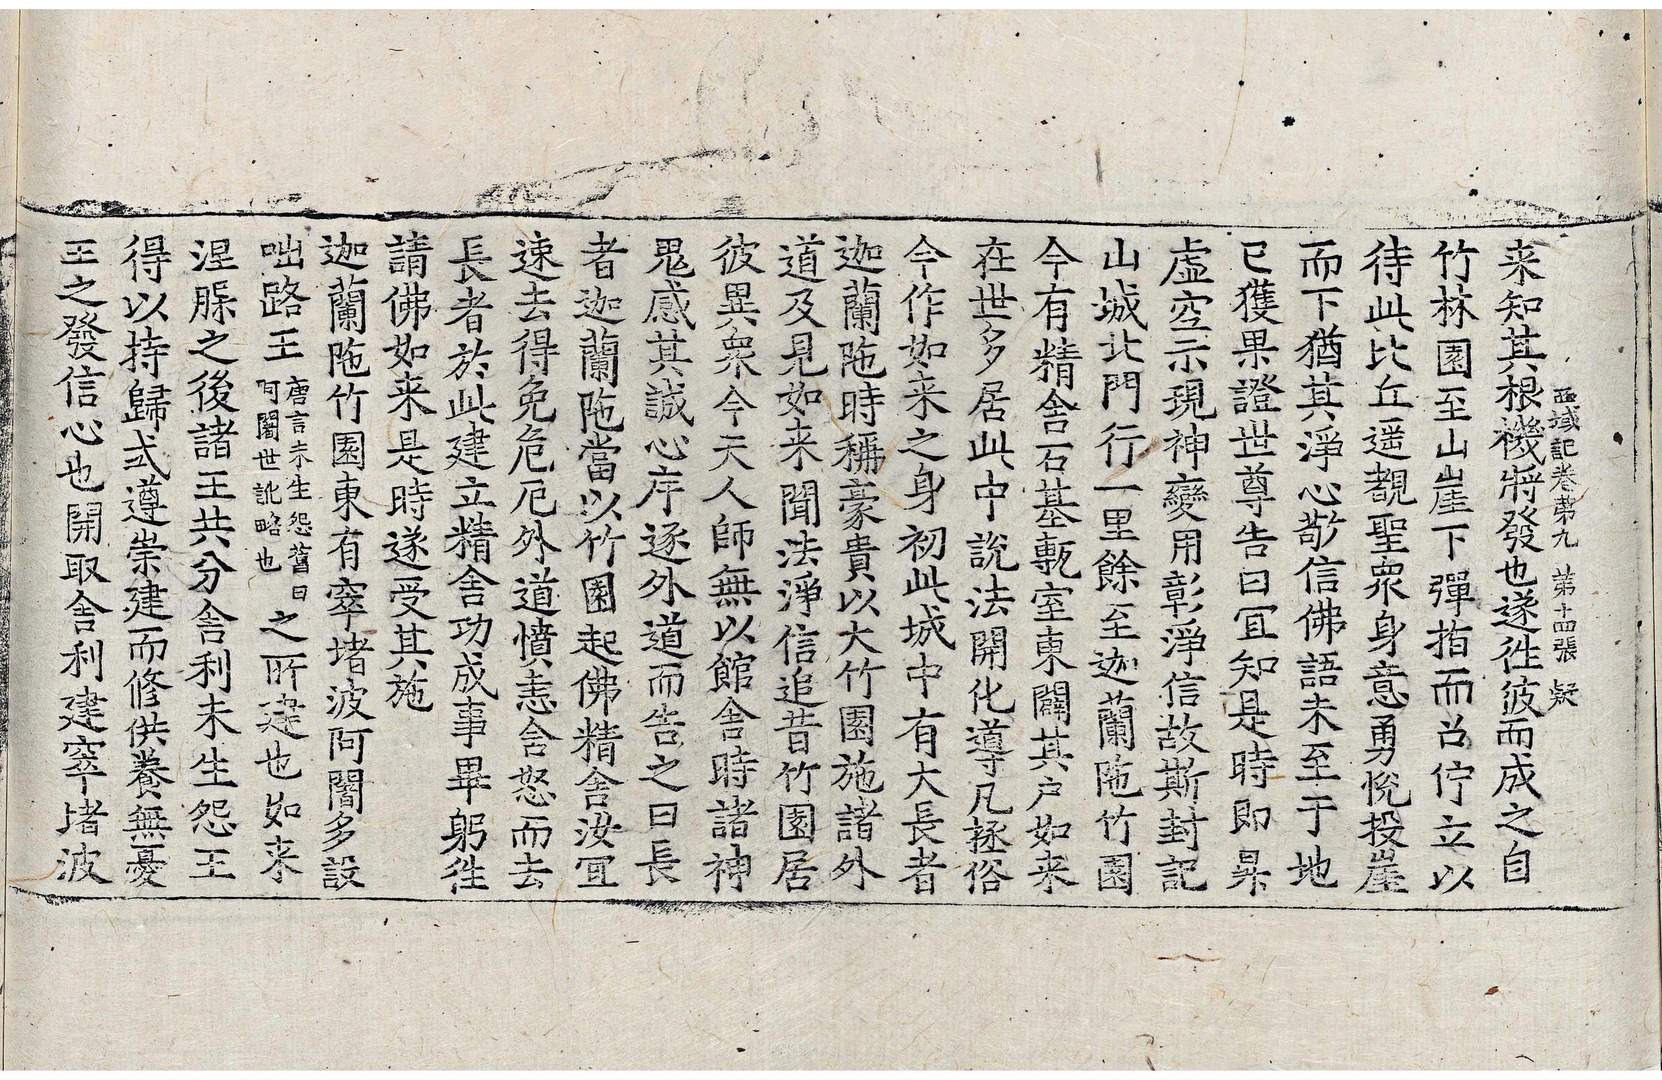 西域記卷第九　第十四張　疑
来知其根機將發也遂徃彼而成之自
竹林園至山崖下彈指而召佇立以
待此比丘遥覩聖衆身意勇恱投崖
而下猶其淨心敬信佛語未至于地
已獲果證世尊告曰冝知是時即昇
虚空示現神變用彰淨信故斯封記
山城北門行一里餘至迦蘭陁竹園
今有精舍石基甎室東闢其户如来
在世多居此中說法開化導凡拯俗
今作如来之身初此城中有大長者
迦蘭陁時稱豪貴以大竹園施諸外
道及見如来聞法淨信追昔竹園居
彼異衆今天人師無以館舍時諸神
鬼感其誠心斥逐外道而告之曰長
者迦蘭陁當以竹園起佛精舍汝冝
速去得免危厄外道憤恚含怒而去
長者於此建立精舍功成事畢躬徃
請佛如来是時遂受其施
迦蘭陁竹園東有窣堵波阿闍多設
咄路王唐言未生怨舊曰阿闍世訛略也之所建也如来
涅槃之後諸王共分舍利未生怨王
得以持歸式遵崇建而修供養無憂
王之發信心也開取舍利建窣堵波